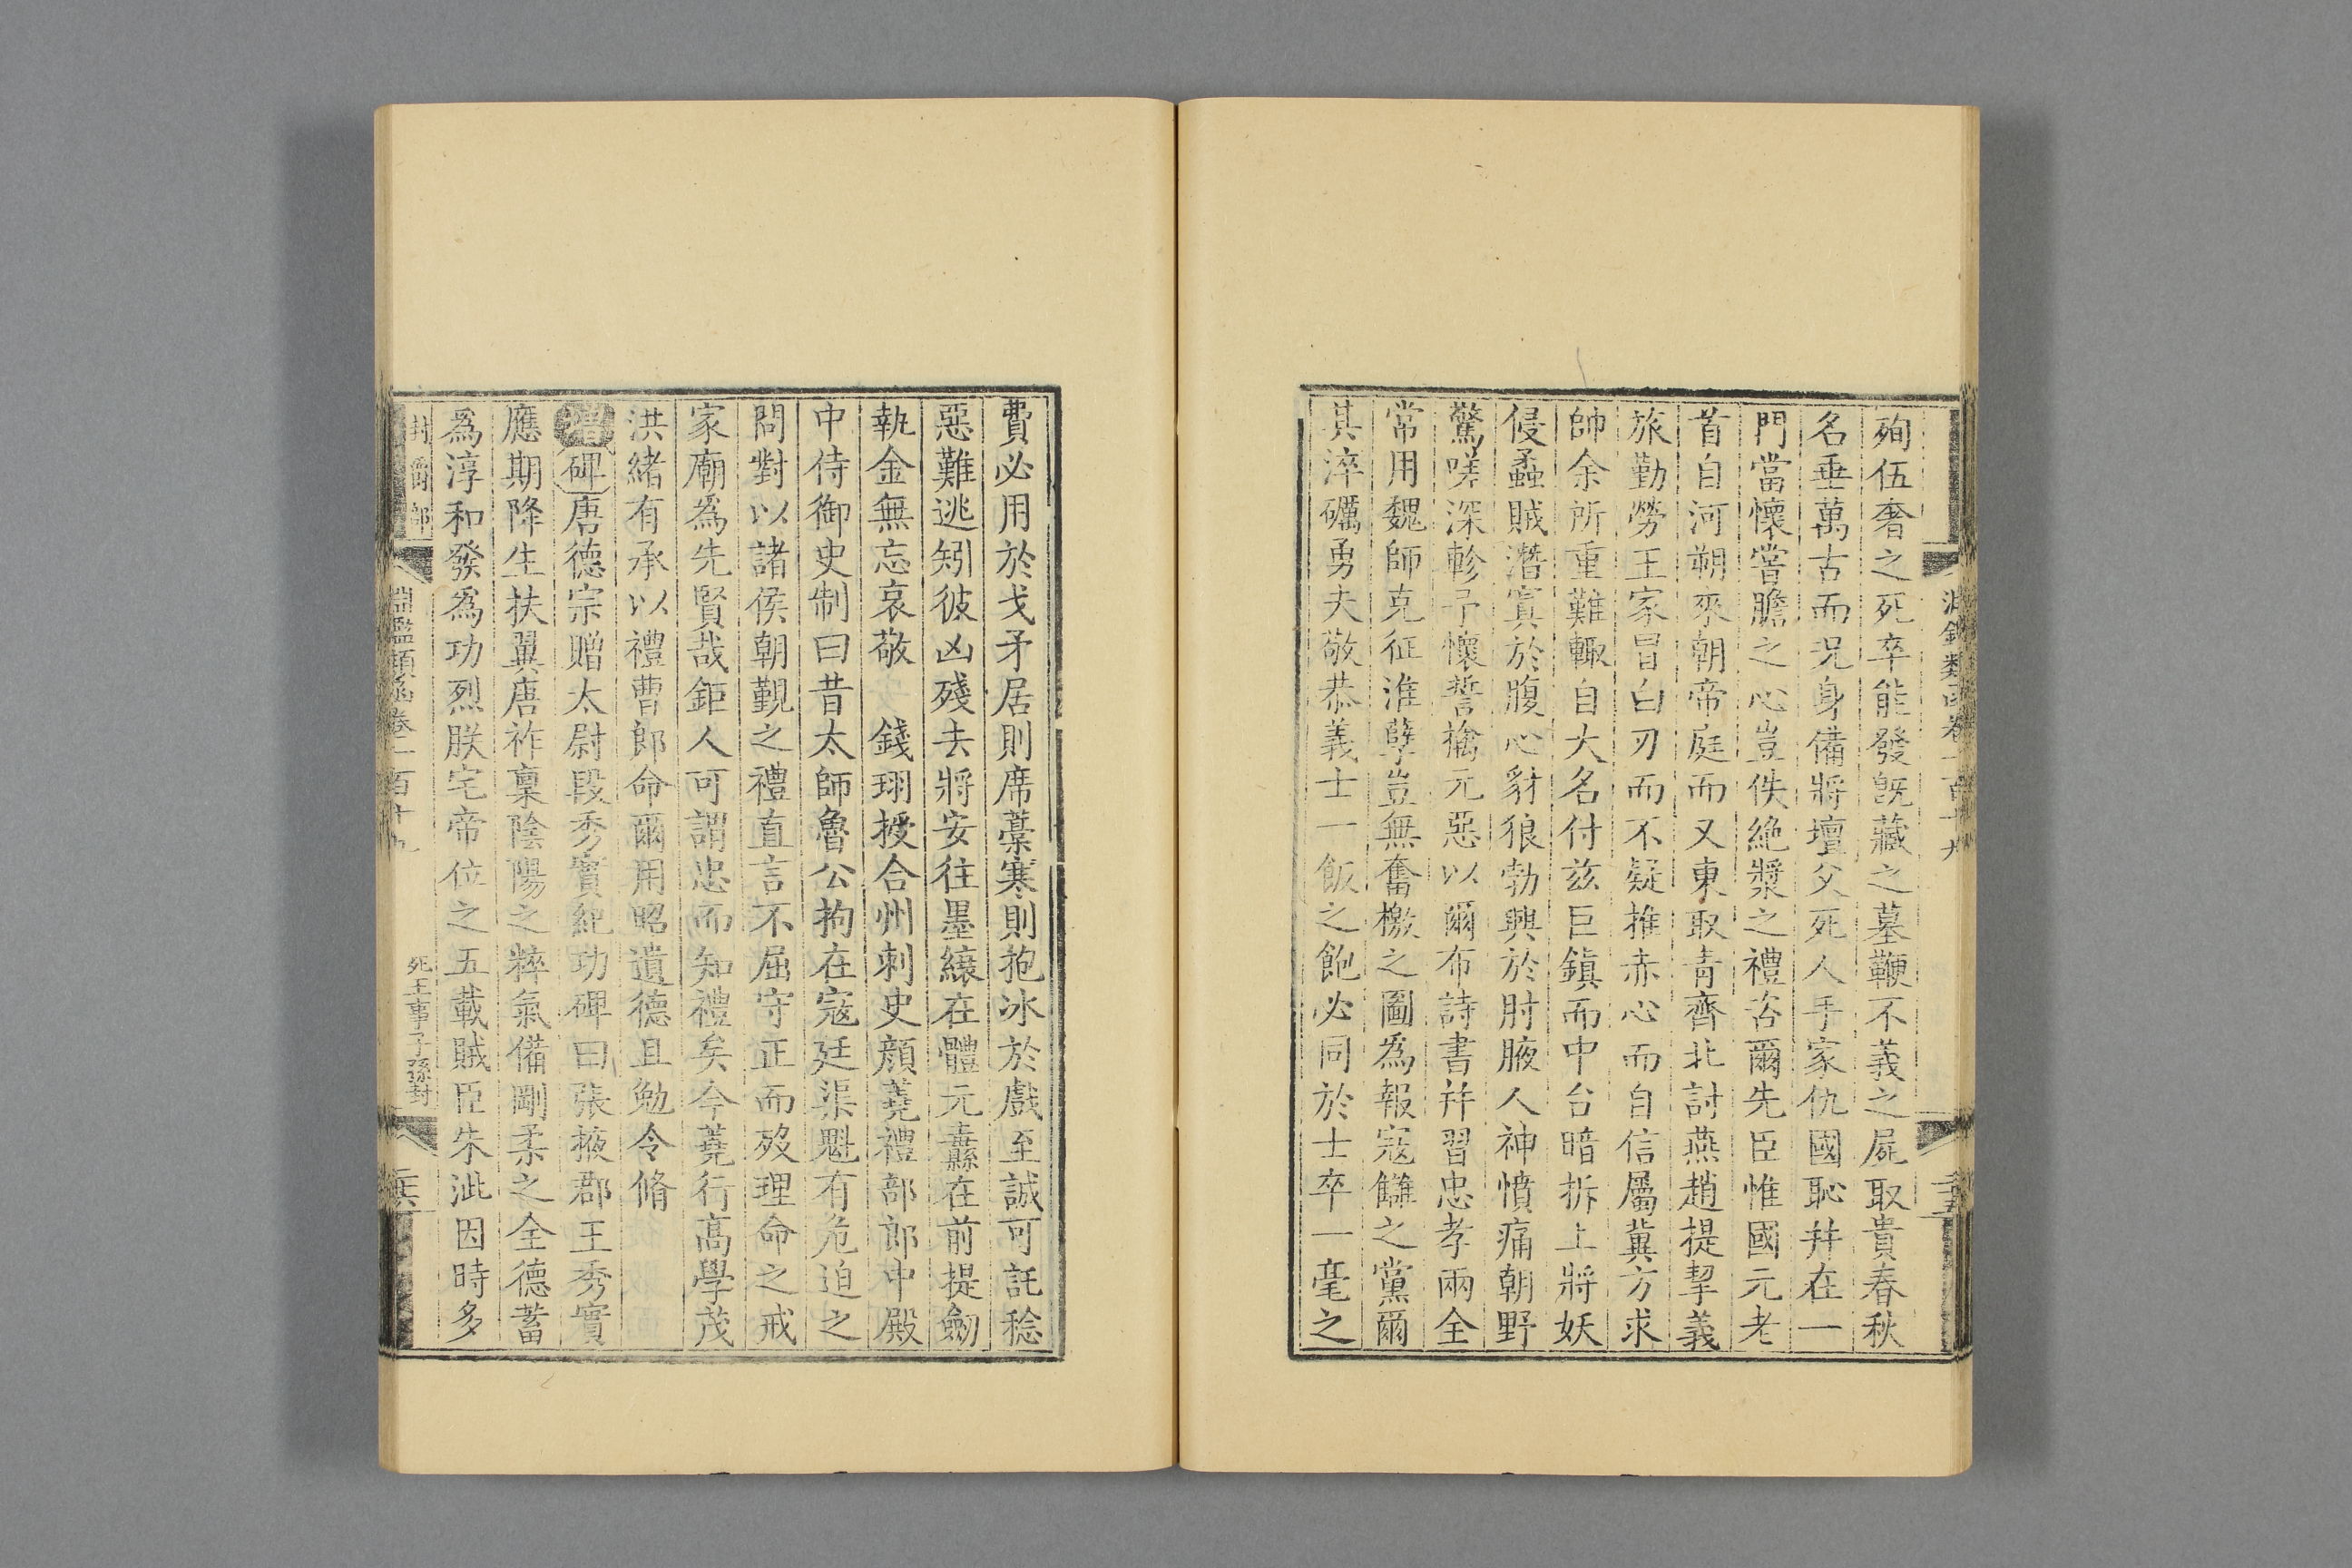 殉伍奢之死卒能發旣藏之墓鞭不義之屍取貴春秋
名垂萬古而況身備將壇父死人手家仇國恥幷在一
門當懷嘗膽之心豈佚絶漿之禮咨爾先臣惟國元老
首自河朔來朝帝庭而又東取青齊北討燕趙提挈義
旅勤勞王家冒白刃而不疑推赤心而自信屬冀方求
帥余所重難輙自大名付兹巨鎮而中台暗拆上將妖
侵蟊賊潛寘於腹心豺狼勃興於肘腋人神憤痛朝野
驚嗟深軫予懷誓擒元惡以爾布詩書幷習忠孝兩全
常用魏師克征淮孽豈無奮檄之圖爲報寇讎之黨爾
其淬礪勇夫敬恭義士一飯之飽必同於士卒一毫之
費必用於戈矛居則席藁寒則抱冰於戲至誠可託稔
惡難逃矧彼凶殘去將安往墨縗在體元纛在前提劒
執金無忘哀敬 錢珝授合州刺史顔蕘禮部郎中殿
中侍御史制曰昔太師魯公拘在寇廷渠魁有危迫之
問對以諸侯朝覲之禮直言不屈守正而歿理命之戒
家廟爲先賢哉鉅人可謂忠而知禮矣今蕘行高學茂
洪緒有承以禮曹郎命爾用昭遺德且勉令脩
增碑唐德宗贈太尉段秀實紀功碑曰張掖郡王秀實
應期降生扶翼唐祚稟陰陽之粹氣備剛柔之全德蓄
爲淳和發爲功烈朕宅帝位之五載賊臣朱泚因時多
封爵部 淵鑑類函卷一百十九 死王事子孫封